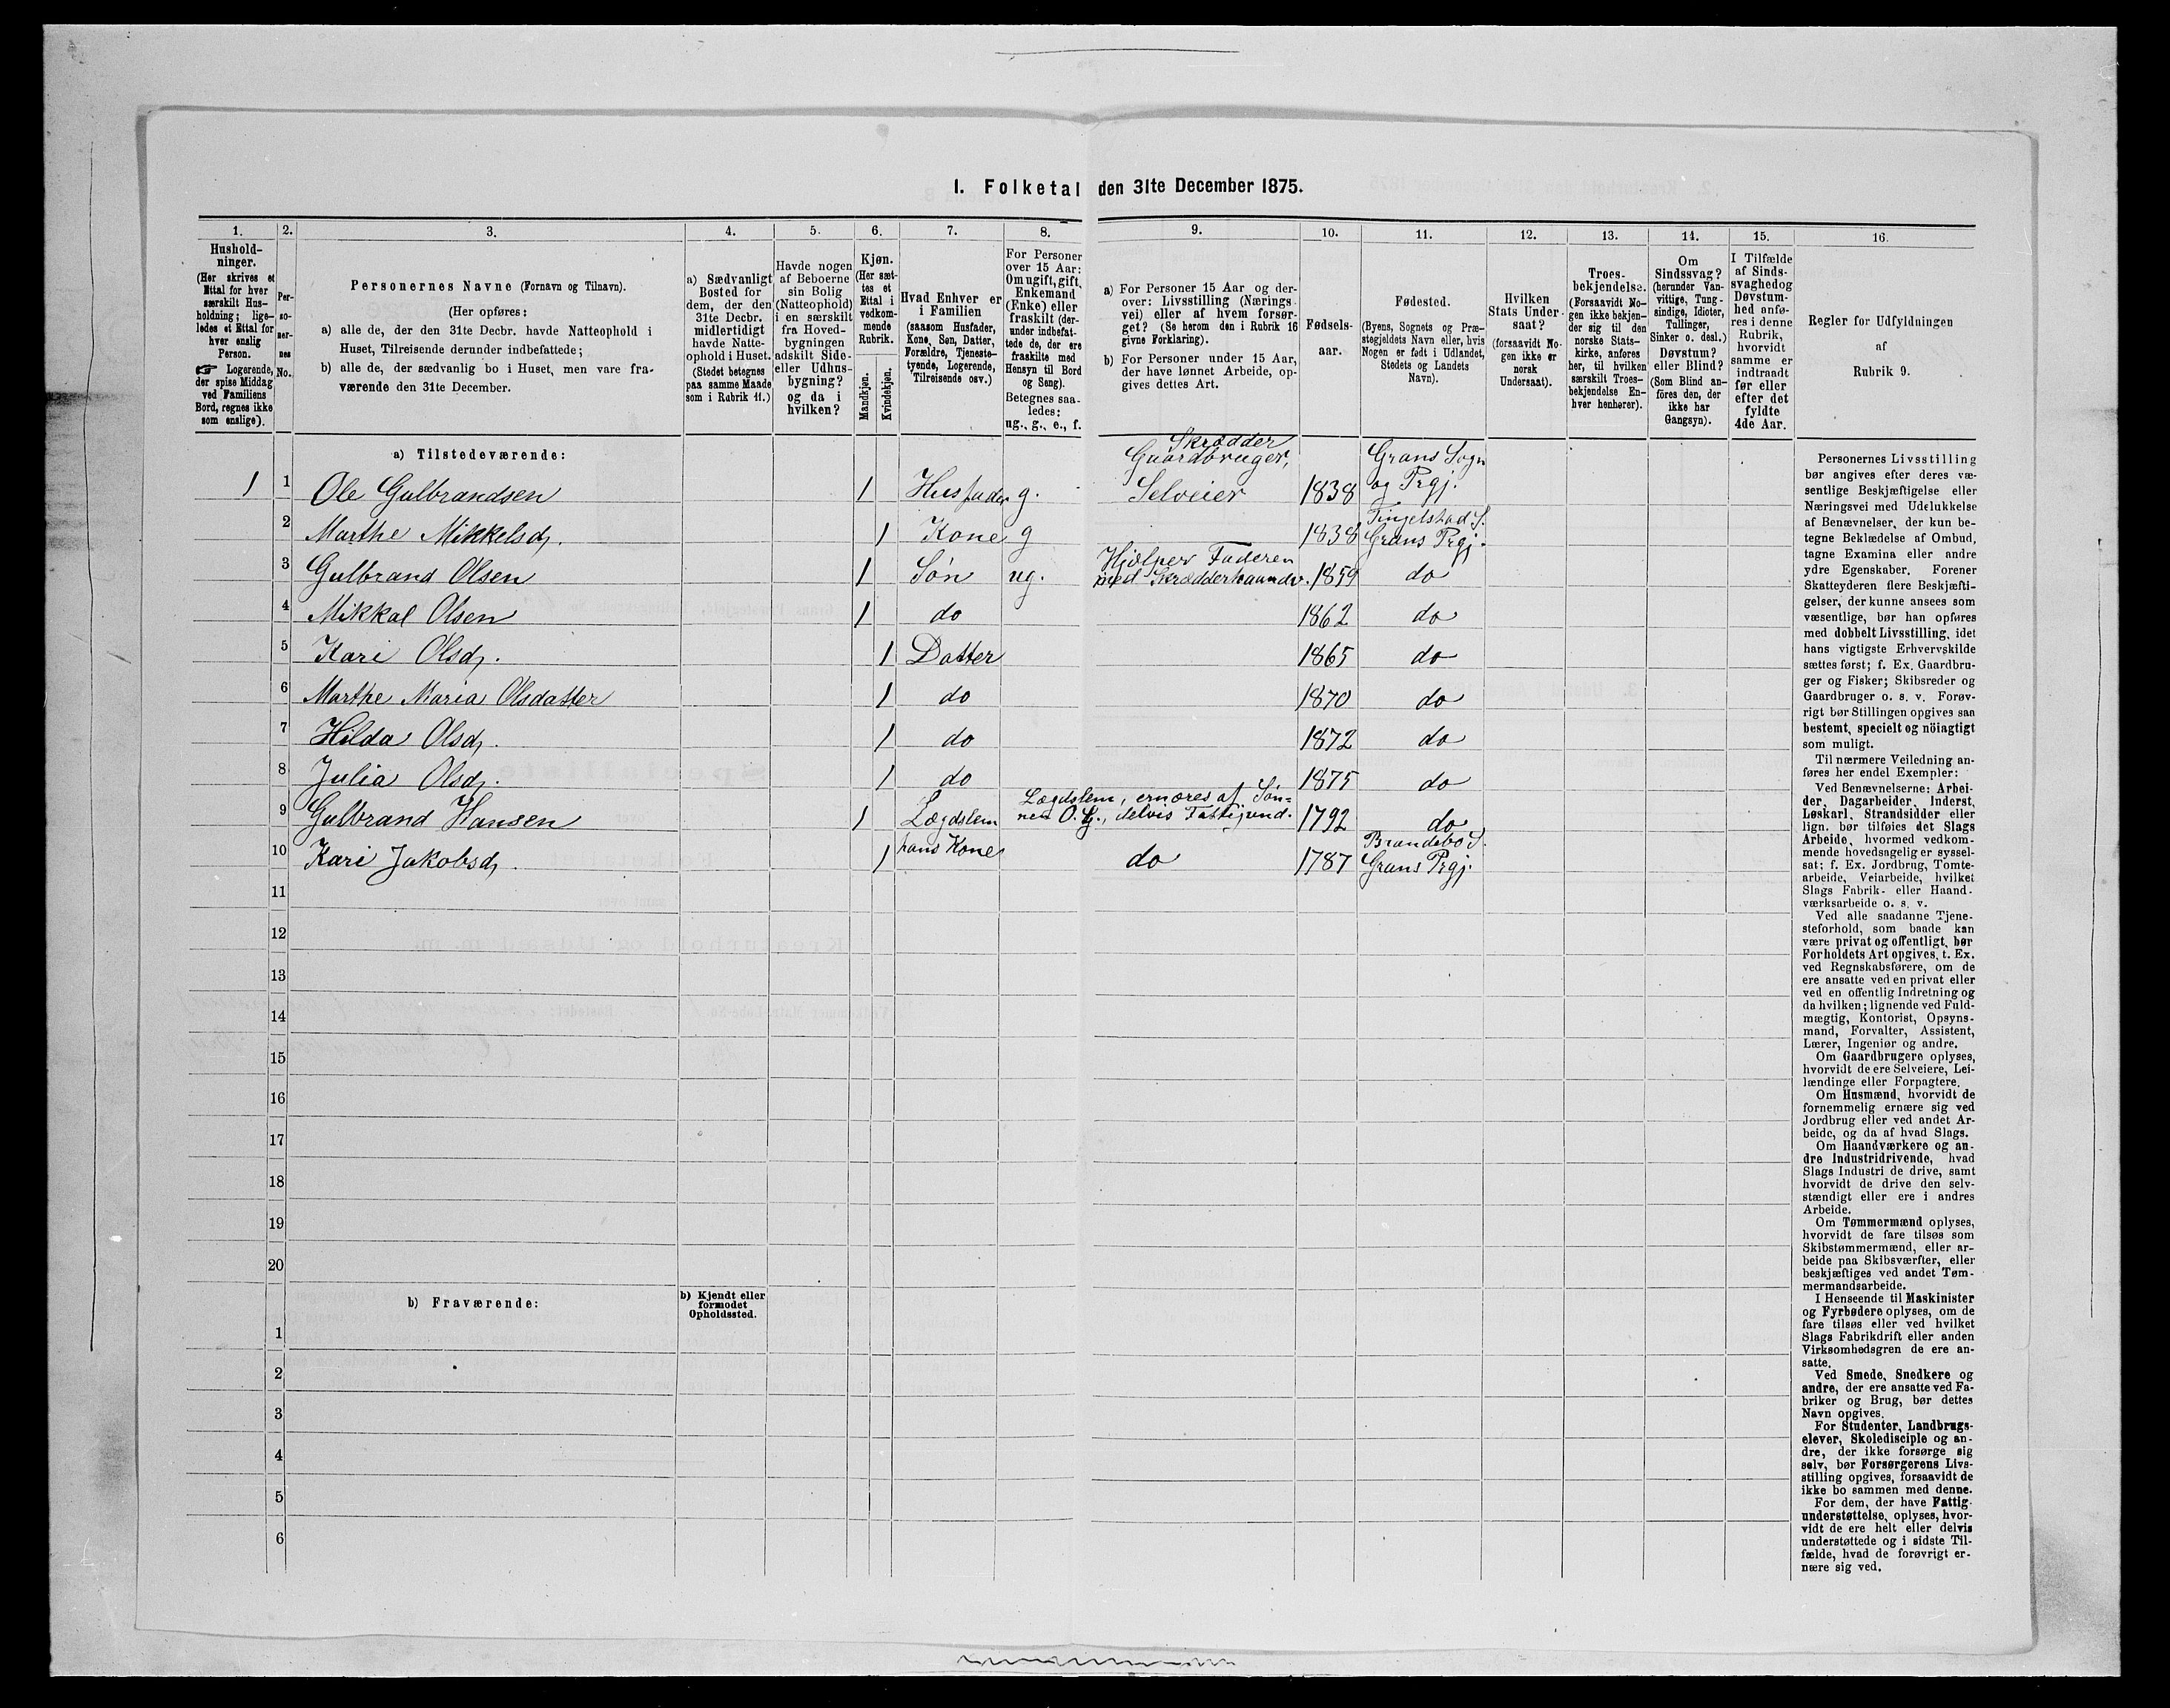 I. Folketal den 31te December 1875.
1.
2.
3.
4.
5.
6.
7.
8.
9.
10.
11.
12.
13.
14.
15.
16.
Hushold-
ninger.
(Her skrives et
Ettal for hver
særskilt Hus-
holdning; lige-
ledes et Ettal for
hver enslig
Person.
☞ Logerende,
der spise Middag
ved Familiens
Bord, regnes ikke
som enslige).
Per-
so-
ner-
nes
No.
Personernes Navne (Fornavn og Tilnavn).
(Her opføres:
a) alle de, der den 31te Decbr. havde Natteophold i
Huset, Tilreisende derunder indbefattede;
b) alle de, der sædvanlig bo i Huset, men vare fra-
værende den 31te December.
a) Sædvanligt
Bosted for
dem, der den
31te Decbr.
midlertidigt
havde Natte-
ophold i Huset.
(Stedet betegnes
paa samme Maade
som i Rubrik 11.)
Havde nogen
af Beboerne
sin Bolig
(Natteophold)
i en særskilt
fra Hoved-
bygningen
adskilt Side-
eller Udhus-
bygning?
og da i
hvilken?
Kjøn.
(Her sæt-
tes et
Ettal i
vedkom-
mende
Rubrik.
Mandkjøn.
Kvindekjøn.
Hvad Enhver er
i Familien
(saasom Husfader,
Kone, Søn, Datter,
Forældre, Tjeneste-
tyende, Logerende,
Tilreisende osv.)
For Personer
over 15 Aar:
Om ugift, gift,
Enkemand
(Enke) eller
fraskilt (der-
under indbefat-
tede de, der ere
fraskilte med
Hensyn til Bord
og Seng).
Betegnes saa-
ledes:
ug., g., e., f.
a) For Personer 15 Aar og der-
over: Livsstilling (Nærings-
vei) eller af hvem forsør-
get? (Se herom den i Rubrik 16
givne Forklaring).
b) For Personer under 15 Aar,
der have lønnet Arbeide, op-
gives dettes Art.
Fødsels-
aar.
Fødested.
(Byens, Sognets og Præ-
stegjeldets Navn eller, hvis
Nogen er født i Udlandet,
Stedets og Landets
Navn).
Hvilken
Stats Under-
saat?
(forsaavidt No-
gen ikke er
norsk
Undersaat).
Troes-
bekjendelse.
(Forsaavidt No-
gen ikke bekjen-
der sig til den
norske Stats-
kirke, anføres
her, til hvilken
særskilt Troes-
bekjendelse En-
hver henhører).
Om
Sindssvag?
(herunder Van-
vittige, Tung-
sindige, Idioter,
Tullinger,
Sinker o. desl.)
Døvstum?
eller Blind?
(Som Blind an-
föres den, der
ikke har
Gangsyn).
I Tilfælde
af Sinds-
svaghed og
Døvstum-
hed anfø-
res i denne
Rubrik,
hvorvidt
samme er
indtraadt
før eller
efter det
fyldte
4de Aar.
Regler for Udfyldningen
af
Rubrik 9.
a) Tilstedeværende:
1 1 Ole Gulbrandsen 1 Husfader g. Skrædder Gaardbruger, Selveier 1838 Grans Sogn og Prgj.
2 Marthe Mikkelsd. 1 Kone g 1838 Tingelstad S. Grans Prgj.
3 Gulbrand Olsen 1 Søn ug. Hjælper Faderen med Skrædderhaandv. 1859 do
4 Mikkal Olsen 1 do 1862 do
5 Kari Olsd. 1 Datter 1865 do
6 Marthe Maria Olsdatter 1 do 1870 do
7 Hilda Olsd. 1 do 1872 do
8 Julia Olsd. 1 do 1875 do
9 Gulbrand Hansen 1 Lægdslem Lægdslem, ernæres af Søn=
nen O. G., delvis Fattigund. 1792 do
10 Kari Jakobsd. 1 hans Kone do 1787 Brandebo S. Grans Prgj.
11
12
13
14
15
16
17
18
19
20
b) Fraværende:
b) Kjendt eller
formodet
Opholdssted.
1
2
3
4
5
6
Personernes Livsstilling
bør angives efter deres væ-
sentlige Beskjæftigelse eller
Næringsvei med Udelukkelse
af Benævnelser, der kun be-
tegne Beklædelse af Ombud,
tagne Examina eller andre
ydre Egenskaber. Forener
Skatteyderen flere Beskjæfti-
gelser, der kunne ansees som
væsentlige, bør han opføres
med dobbelt Livsstilling, idet
hans vigtigste Erhvervskilde
sættes først; f. Ex. Gaardbru-
ger og Fisker; Skibsreder og
Gaardbruger o. s. v. Forøv-
rigt bør Stillingen opgives saa
bestemt, specielt og nöiagtigt
som muligt.
Til nærmere Veiledning an-
føres her endel Exempler:
Ved Benævnelserne: Arbei-
der, Dagarbeider, Inderst,
Løskarl, Strandsidder eller
lign. bør tilføies det Slags
Arbeide, hvormed vedkom-
mende hovedsagelig er syssel-
sat; f. Ex. Jordbrug, Tomte-
arbeide, Veiarbeide, hvilket
Slags Fabrik- eller Haand-
værksarbeide o. s. v.
Ved alle saadanne Tjene-
steforhold, som baade kan
være privat og offentligt, bør
Forholdets Art opgives, t. Ex.
ved Regnskabsførere, om de
ere ansatte ved en privat eller
ved en offentlig Indretning og
da hvilken; lignende ved Fuld-
mægtig, Kontorist, Opsyns-
mand, Forvalter, Assistent,
Lærer, Ingeniør og andre.
Om Gaardbrugere oplyses,
hvorvidt de ere Selveiere, Lei-
lændinge eller Forpagtere.
Om Husmænd, hvorvidt de
fornemmelig ernære sig ved
Jordbrug eller ved andet Ar-
beide, og da af hvad Slags.
Om Haandværkere og an-
dre Industridrivende, hvad
Slags Industri de drive, samt
hvorvidt de drive den selv-
stændigt eller ere i andres
Arbeide.
Om Tømmermænd oplyses,
hvorvidt de fare tilsøs som
Skibstømmermænd, eller ar-
beide paa Skibsværfter, eller
beskjæftiges ved andet Tøm-
mermandsarbeide.
I Henseende til Maskinister
og Fyrbødere oplyses, om de
fare tilsøs eller ved hvilket
Slags Fabrikdrift eller anden
Virksomhedsgren de ere an-
satte.
Ved Smede, Snedkere og
andre, der ere ansatte ved Fa-
briker og Brug, bør dettes
Navn opgives.
For Studenter, Landbrugs-
elever, Skoledisciple og an-
dre, der ikke forsørge sig
selv, bør Forsørgerens Livs-
stilling opgives, forsaavidt de
ikke bo sammen med denne.
For dem, der have Fattig-
understøttelse, oplyses, hvor-
vidt de ere helt eller delvis
understøttede og i sidste Til-
fælde, hvad de forøvrigt er-
nære sig ved.